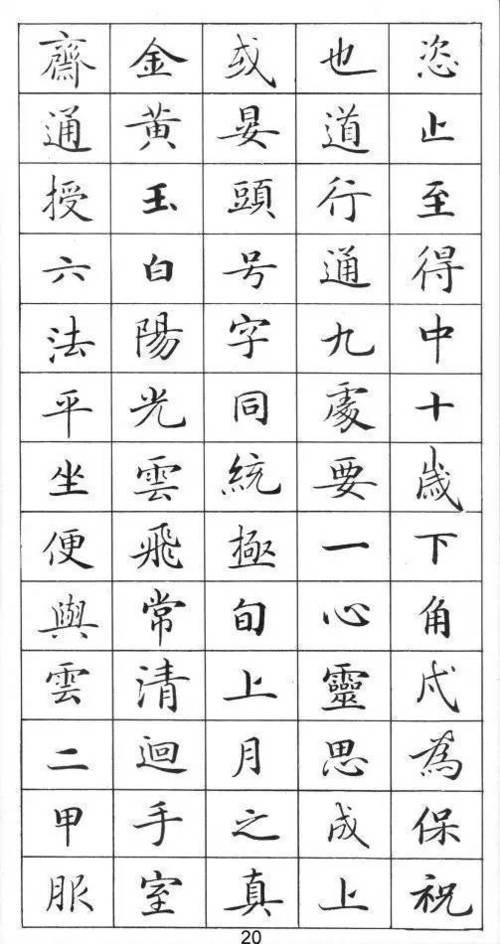 恣止至得中十歲下角戌為保祝
也道行通九處要一心靈思成上
或晏頭号字同統極旬上月之真
金黃玉白陽光雲飛常清迴手室
齋通授六法平坐便與雲二甲服
20